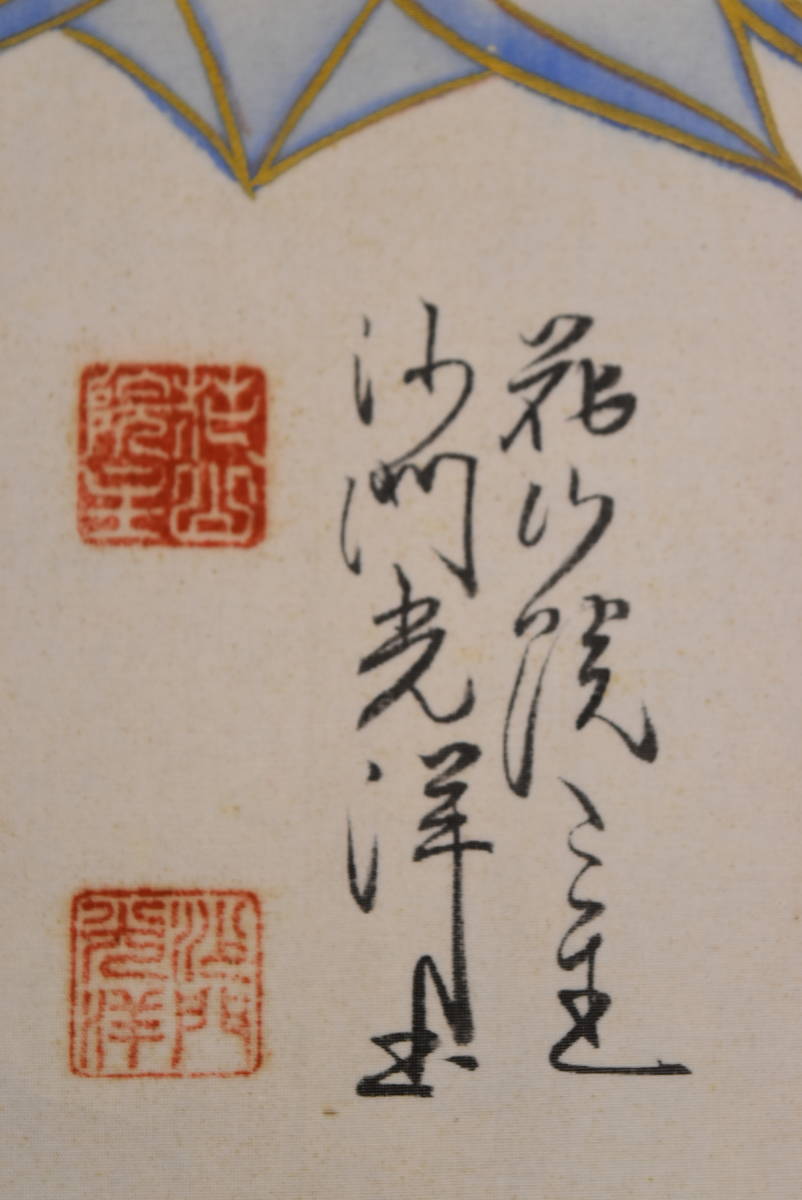 花山院
沙門光洋書
花山
院主
沙門
光洋